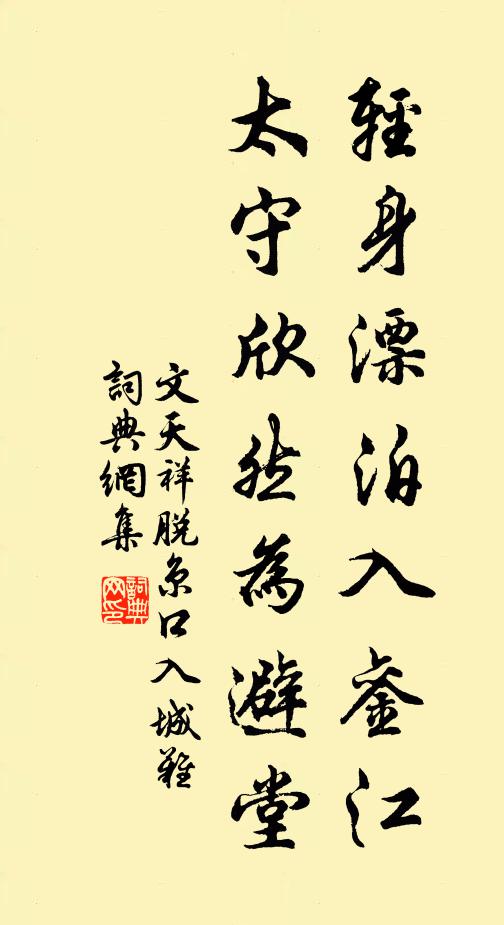 輕身漂泊入銮江
太守欣然為避堂
文天祥脫京口入城難
詞典網集
詞典
网印